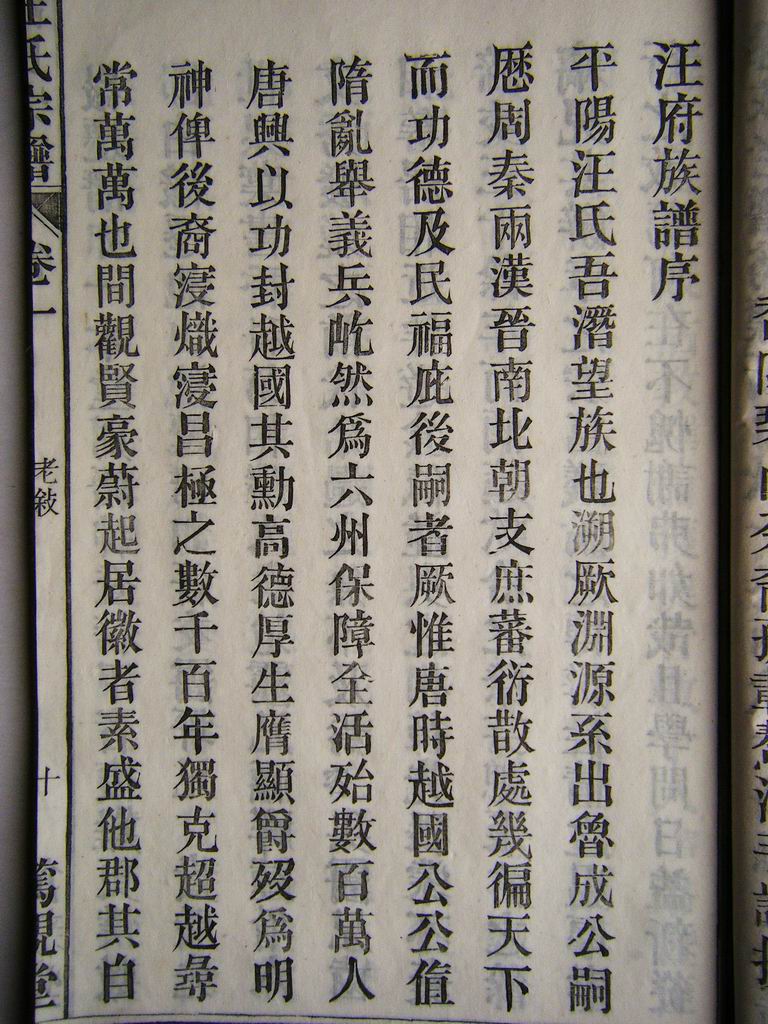 汪府族譜序
平陽汪氏吾潛望族也溯厥淵源系出魯成公嗣
歷周秦兩漢晉南北朝支庶蕃衍散處幾徧天下
而功德及民福庇後嗣者厥惟唐時越國公公值
隋亂舉義兵屹然爲六州保障全活殆數百萬人
唐興以功封越國其勳高德厚生膺顯爵歿爲明
神俾後裔寖熾寖昌極之數千百年獨克超越尋
常萬萬也間觀賢豪蔚起居徽者素盛他郡其自
汪氏宗譜
卷一
老敍
十